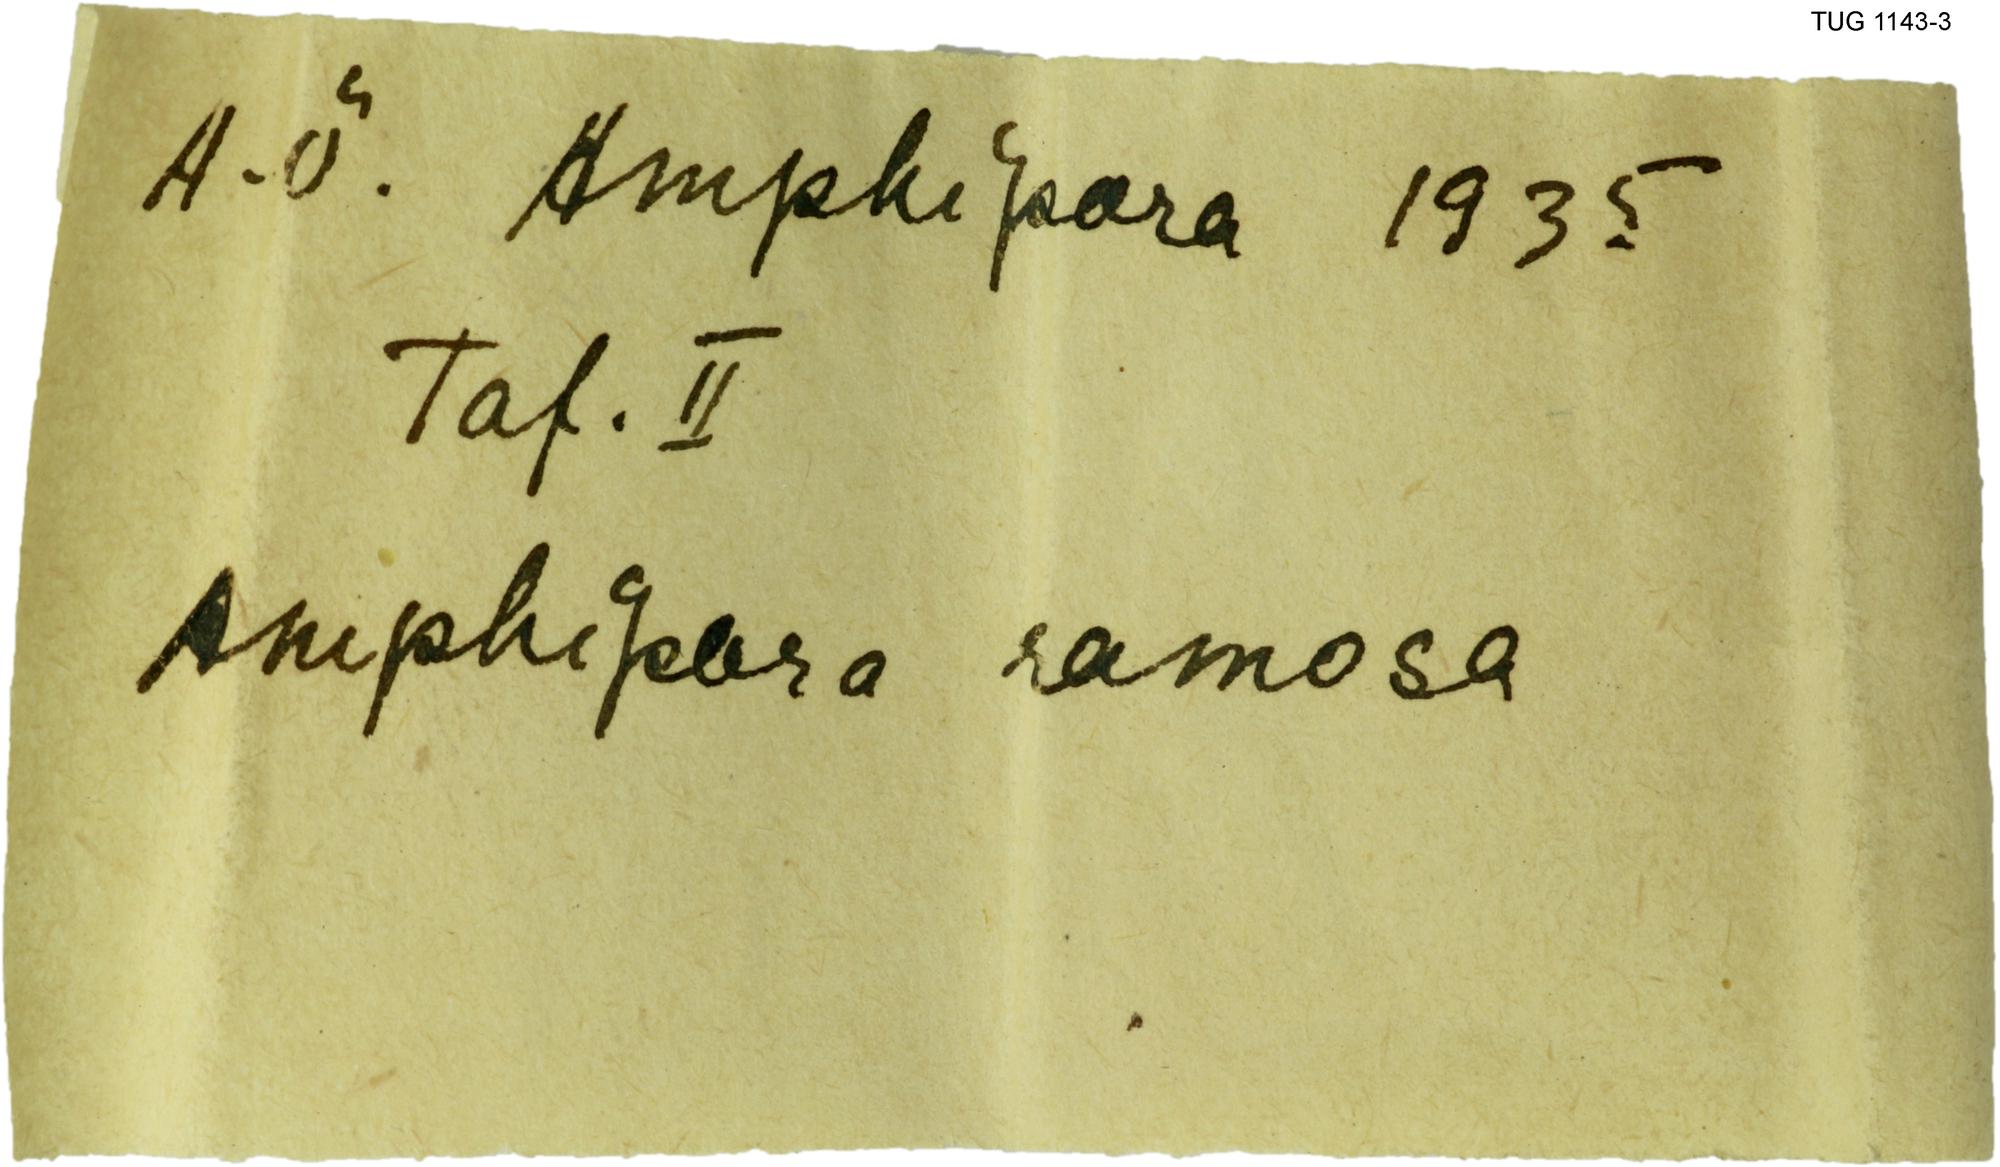 TUG 1143-3
A.-Ö. Amphipora 1935
Taf. II
Amphipora ramosa